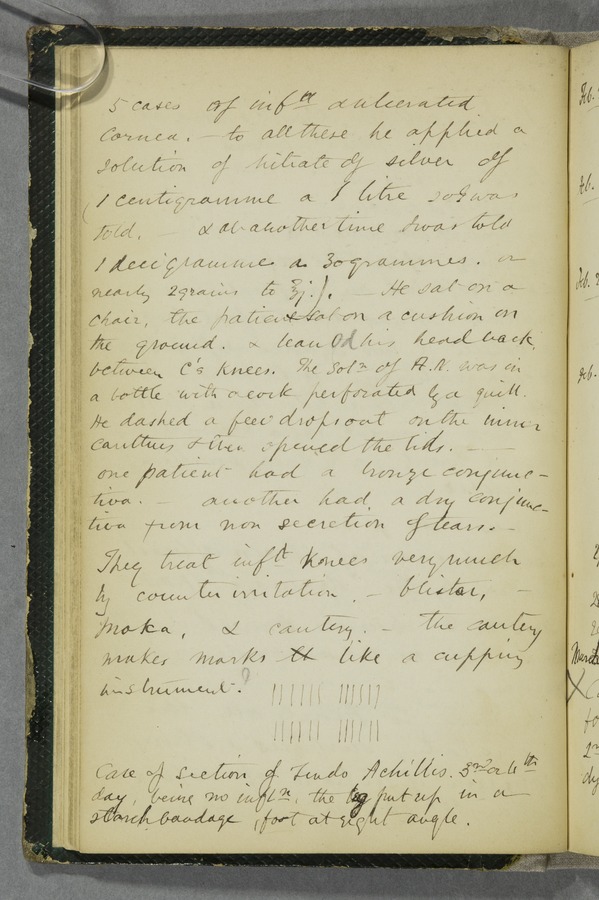 5 cases of infln & ulcerated
cornea. – to all these he applied a
solution of Nitrate of silver of
(1 centigramme a 1 litre so I was
told. – & at another time I was told
1 decigramme a 30 grammes. or
nearly 2 grains to ℥j.). – He sat on a
chair, the patient sat on a cushion on
the ground. & leaned his head back,
between C's knees. The Soln of A.N. was in
a bottle with a cork perforated by a quill.
He dashed a few drops out on the inner
canthus & then opened the lids. –
one patient had a bronze conjunc-
tiva. – another had a dry conjunc-
tiva from non secretion of tears. –
They treat infld Knees very much
by counter irritation. – blister, –
moxa, & cautery. – the cautery
makes marks like a cupping
instrument.
Case of section of Tendo Achillis. 3rd or 4th
day, being no infln, the leg put up in a
starch bandage, foot at right angle.
Feb.
Feb.
Feb.
Feb.